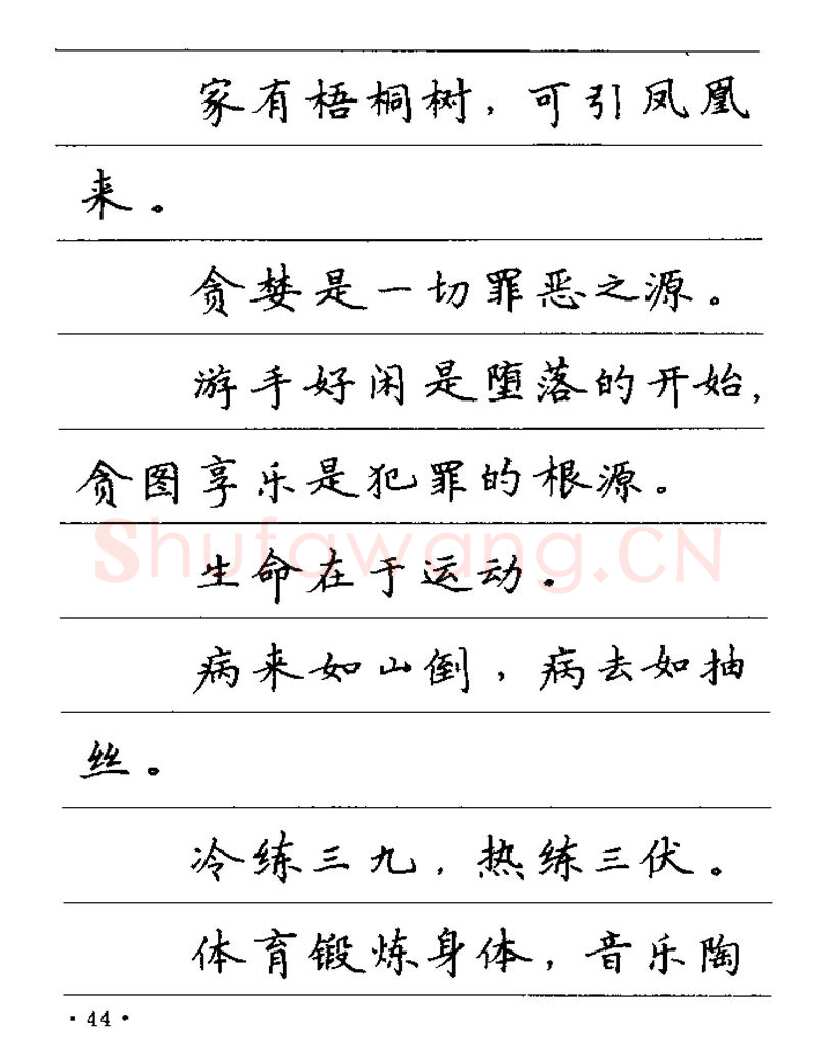 家有梧桐树，可引凤凰
来。
贪婪是一切罪恶之源。
游手好闲是堕落的开始，
贪图享乐是犯罪的根源。
Shufawang.CN
生命在于运动。
病来如山倒，病去如抽
丝。
冷练三九，热练三伏。
体育锻炼身体，音乐陶
·44·